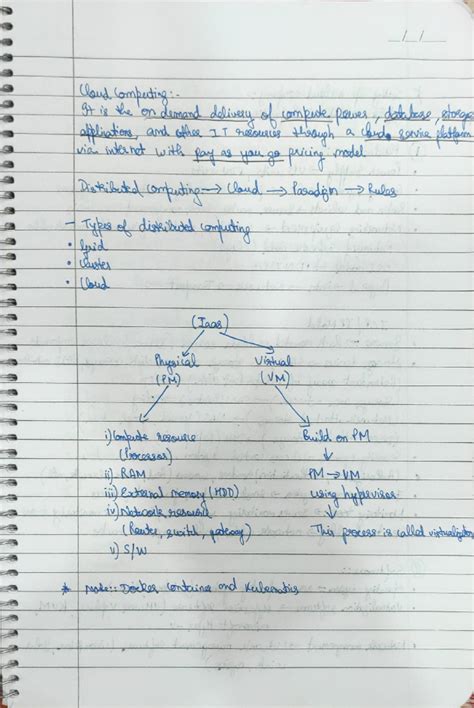 _/_/_
Cloud Computing:-
It is the on demand delivery of compute power, database, storage
applications, and other IT resources through a cloud service platform
via internet with pay as you go pricing model
Distributed computing → Cloud → Paradigm → Rules
- Types of distributed computing
• Grid
• Cluster
• Cloud
(Iaas)
Physical Virtual
(PM) (VM)
i) Compute resource Build on PM
(Processor) ↓
ii) RAM PM → VM
iii) External memory (HDD) using hypervisor
iv) Network resource ↓
(Router, switch, gateway) This process is called virtualization
v) S/W
* Note:: Docker Container and Kubernetics